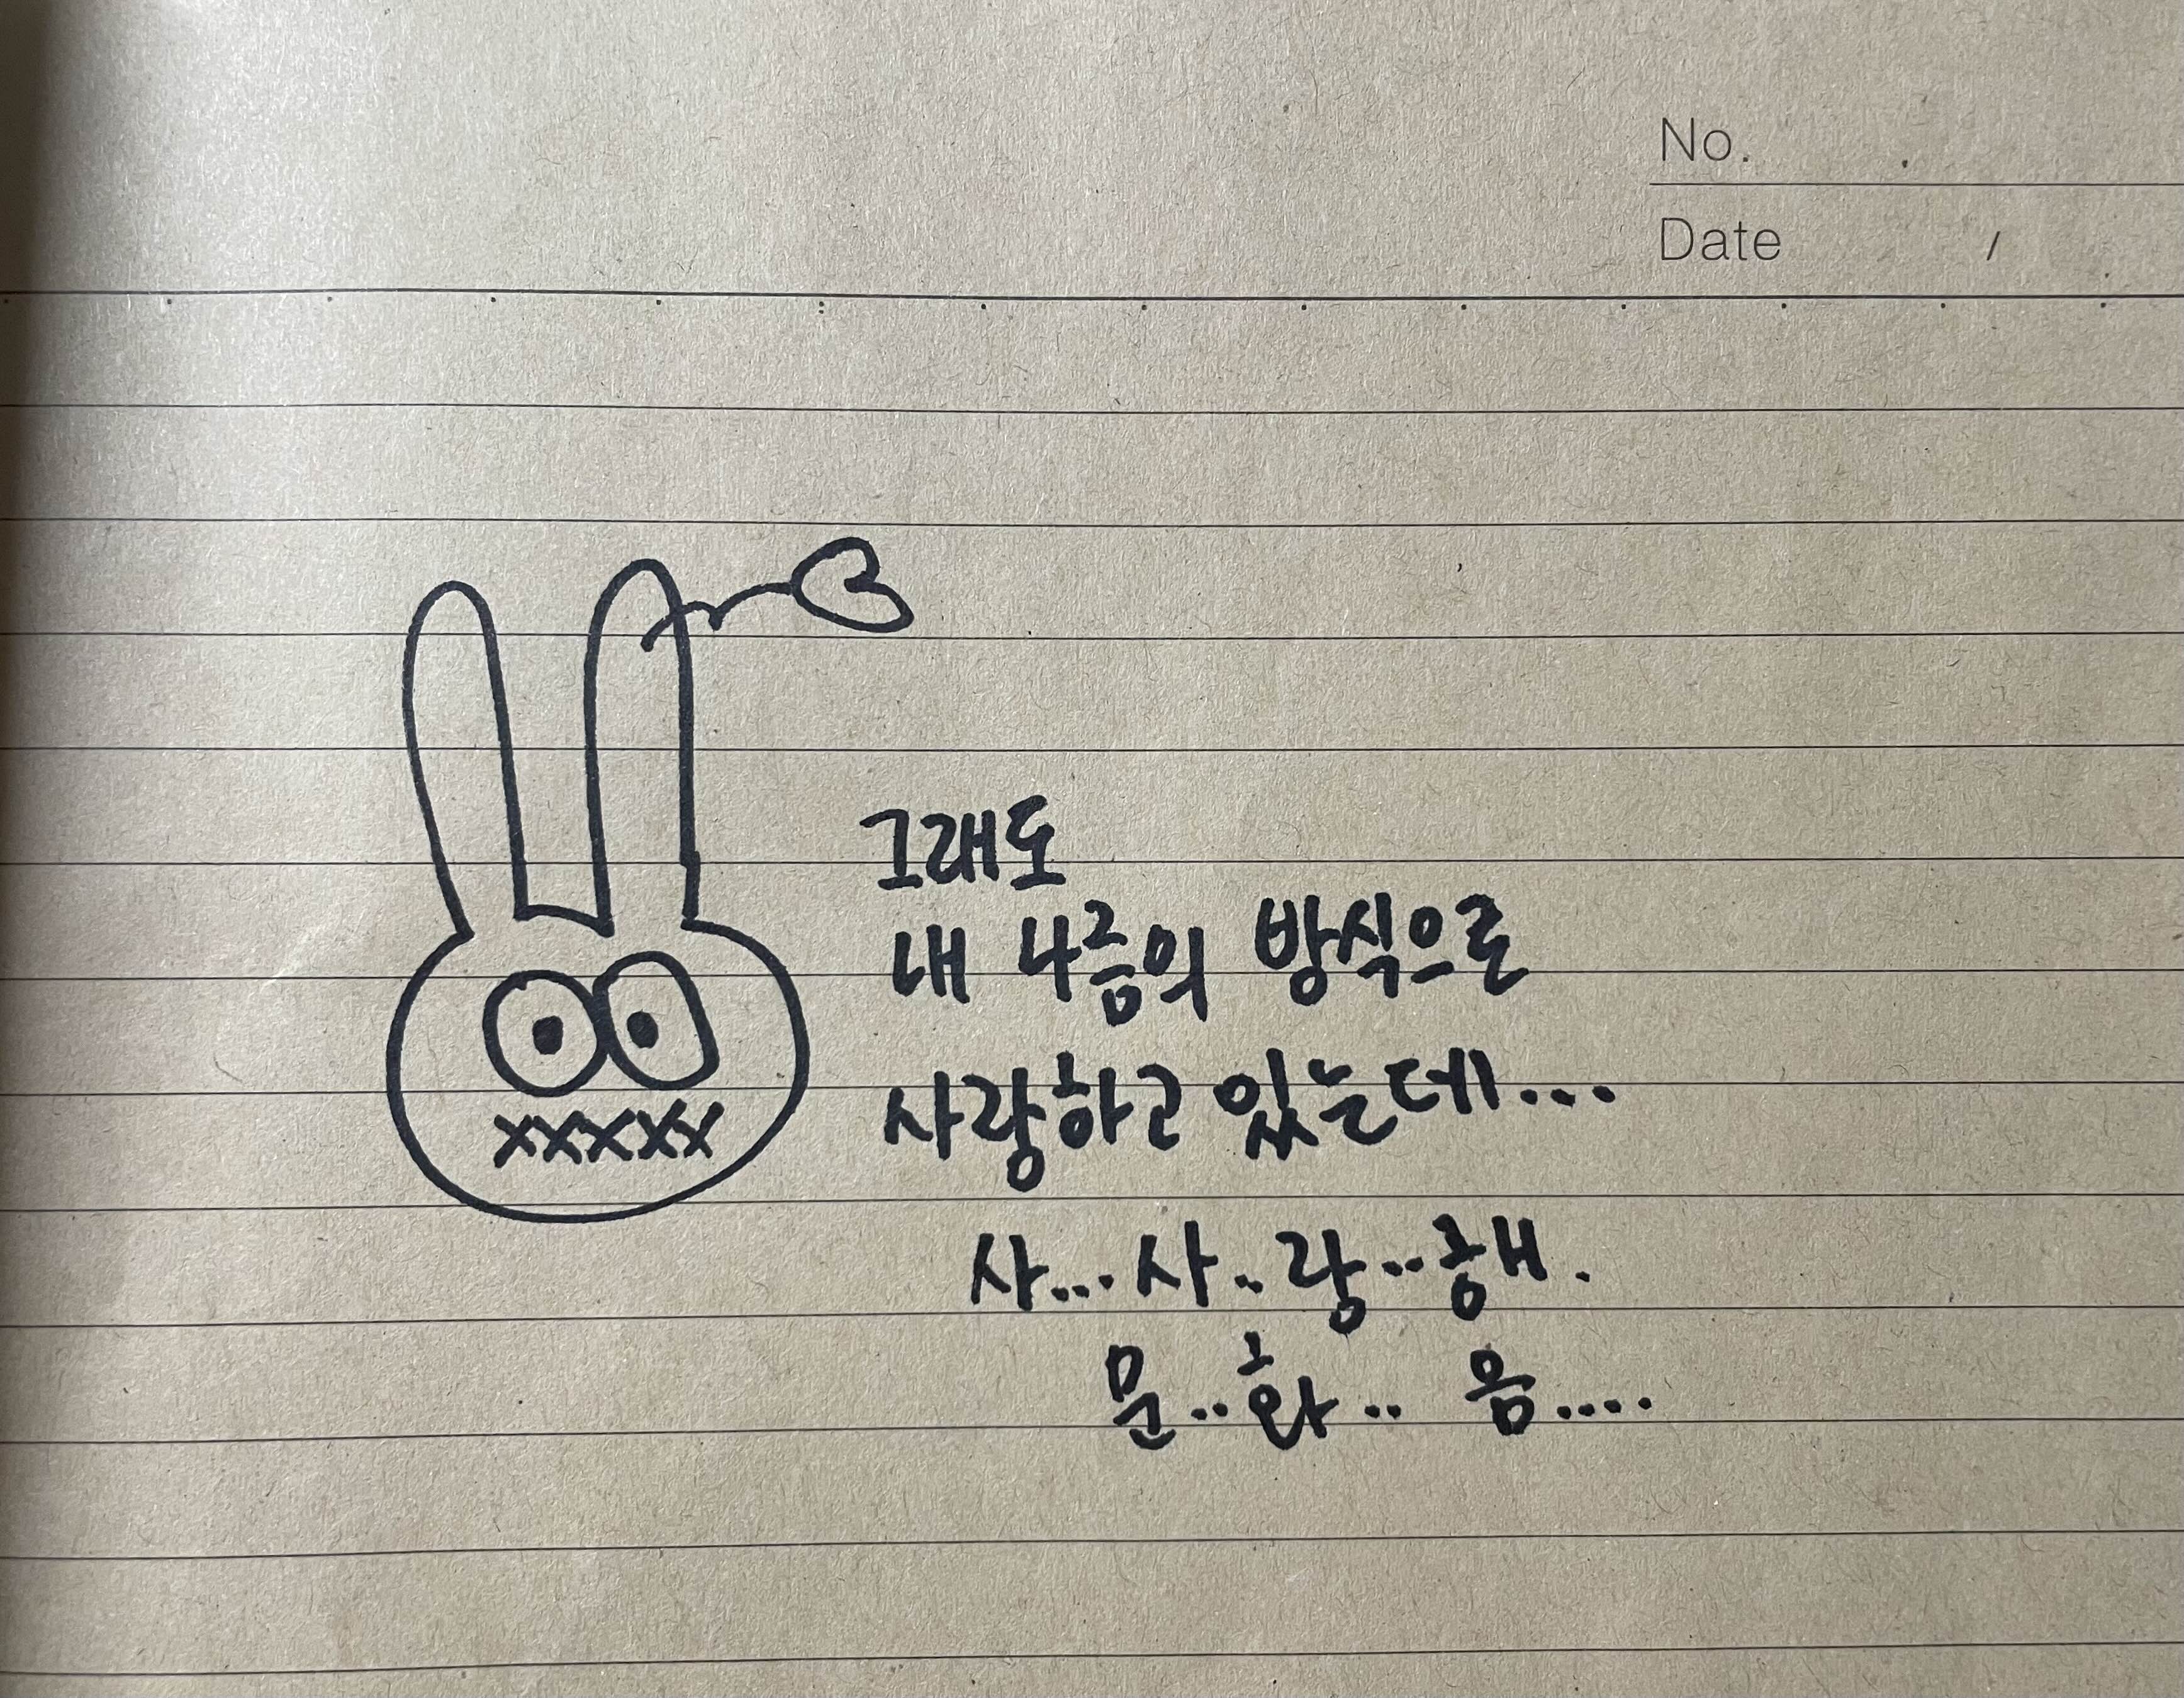 No.
Date /
그래도
내 나름의 방식으로
사랑하고 있는데...
사...사..랑..해.
문..화.. 음....